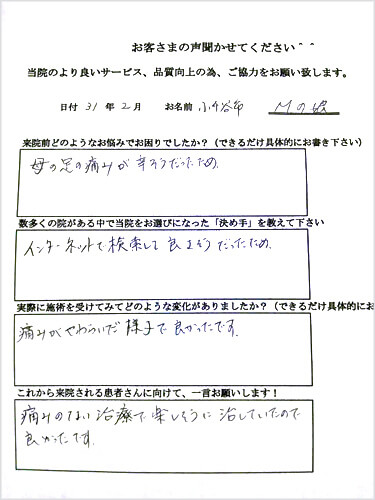 お客さまの声聞かせてください^^
当院のより良いサービス、品質向上の為、ご協力をお願い致します。
日付 31年 2月 お名前 小千谷市 Mの娘
来院前どのようなお悩みでお困りでしたか？（できるだけ具体的にお書き下さい）
母の足の痛みが辛そうだったため。
数多くの院がある中で当院をお選びになった「決め手」を教えて下さい
インターネットで検索して良さそうだったため。
実際に施術を受けてみてどのような変化がありましたか？（できるだけ具体的にお
痛みがやわらいだ様子で良かったです。
これから来院される患者さんに向けて、一言お願いします！
痛みのない治療で楽しそうに治していたので
良かったです。